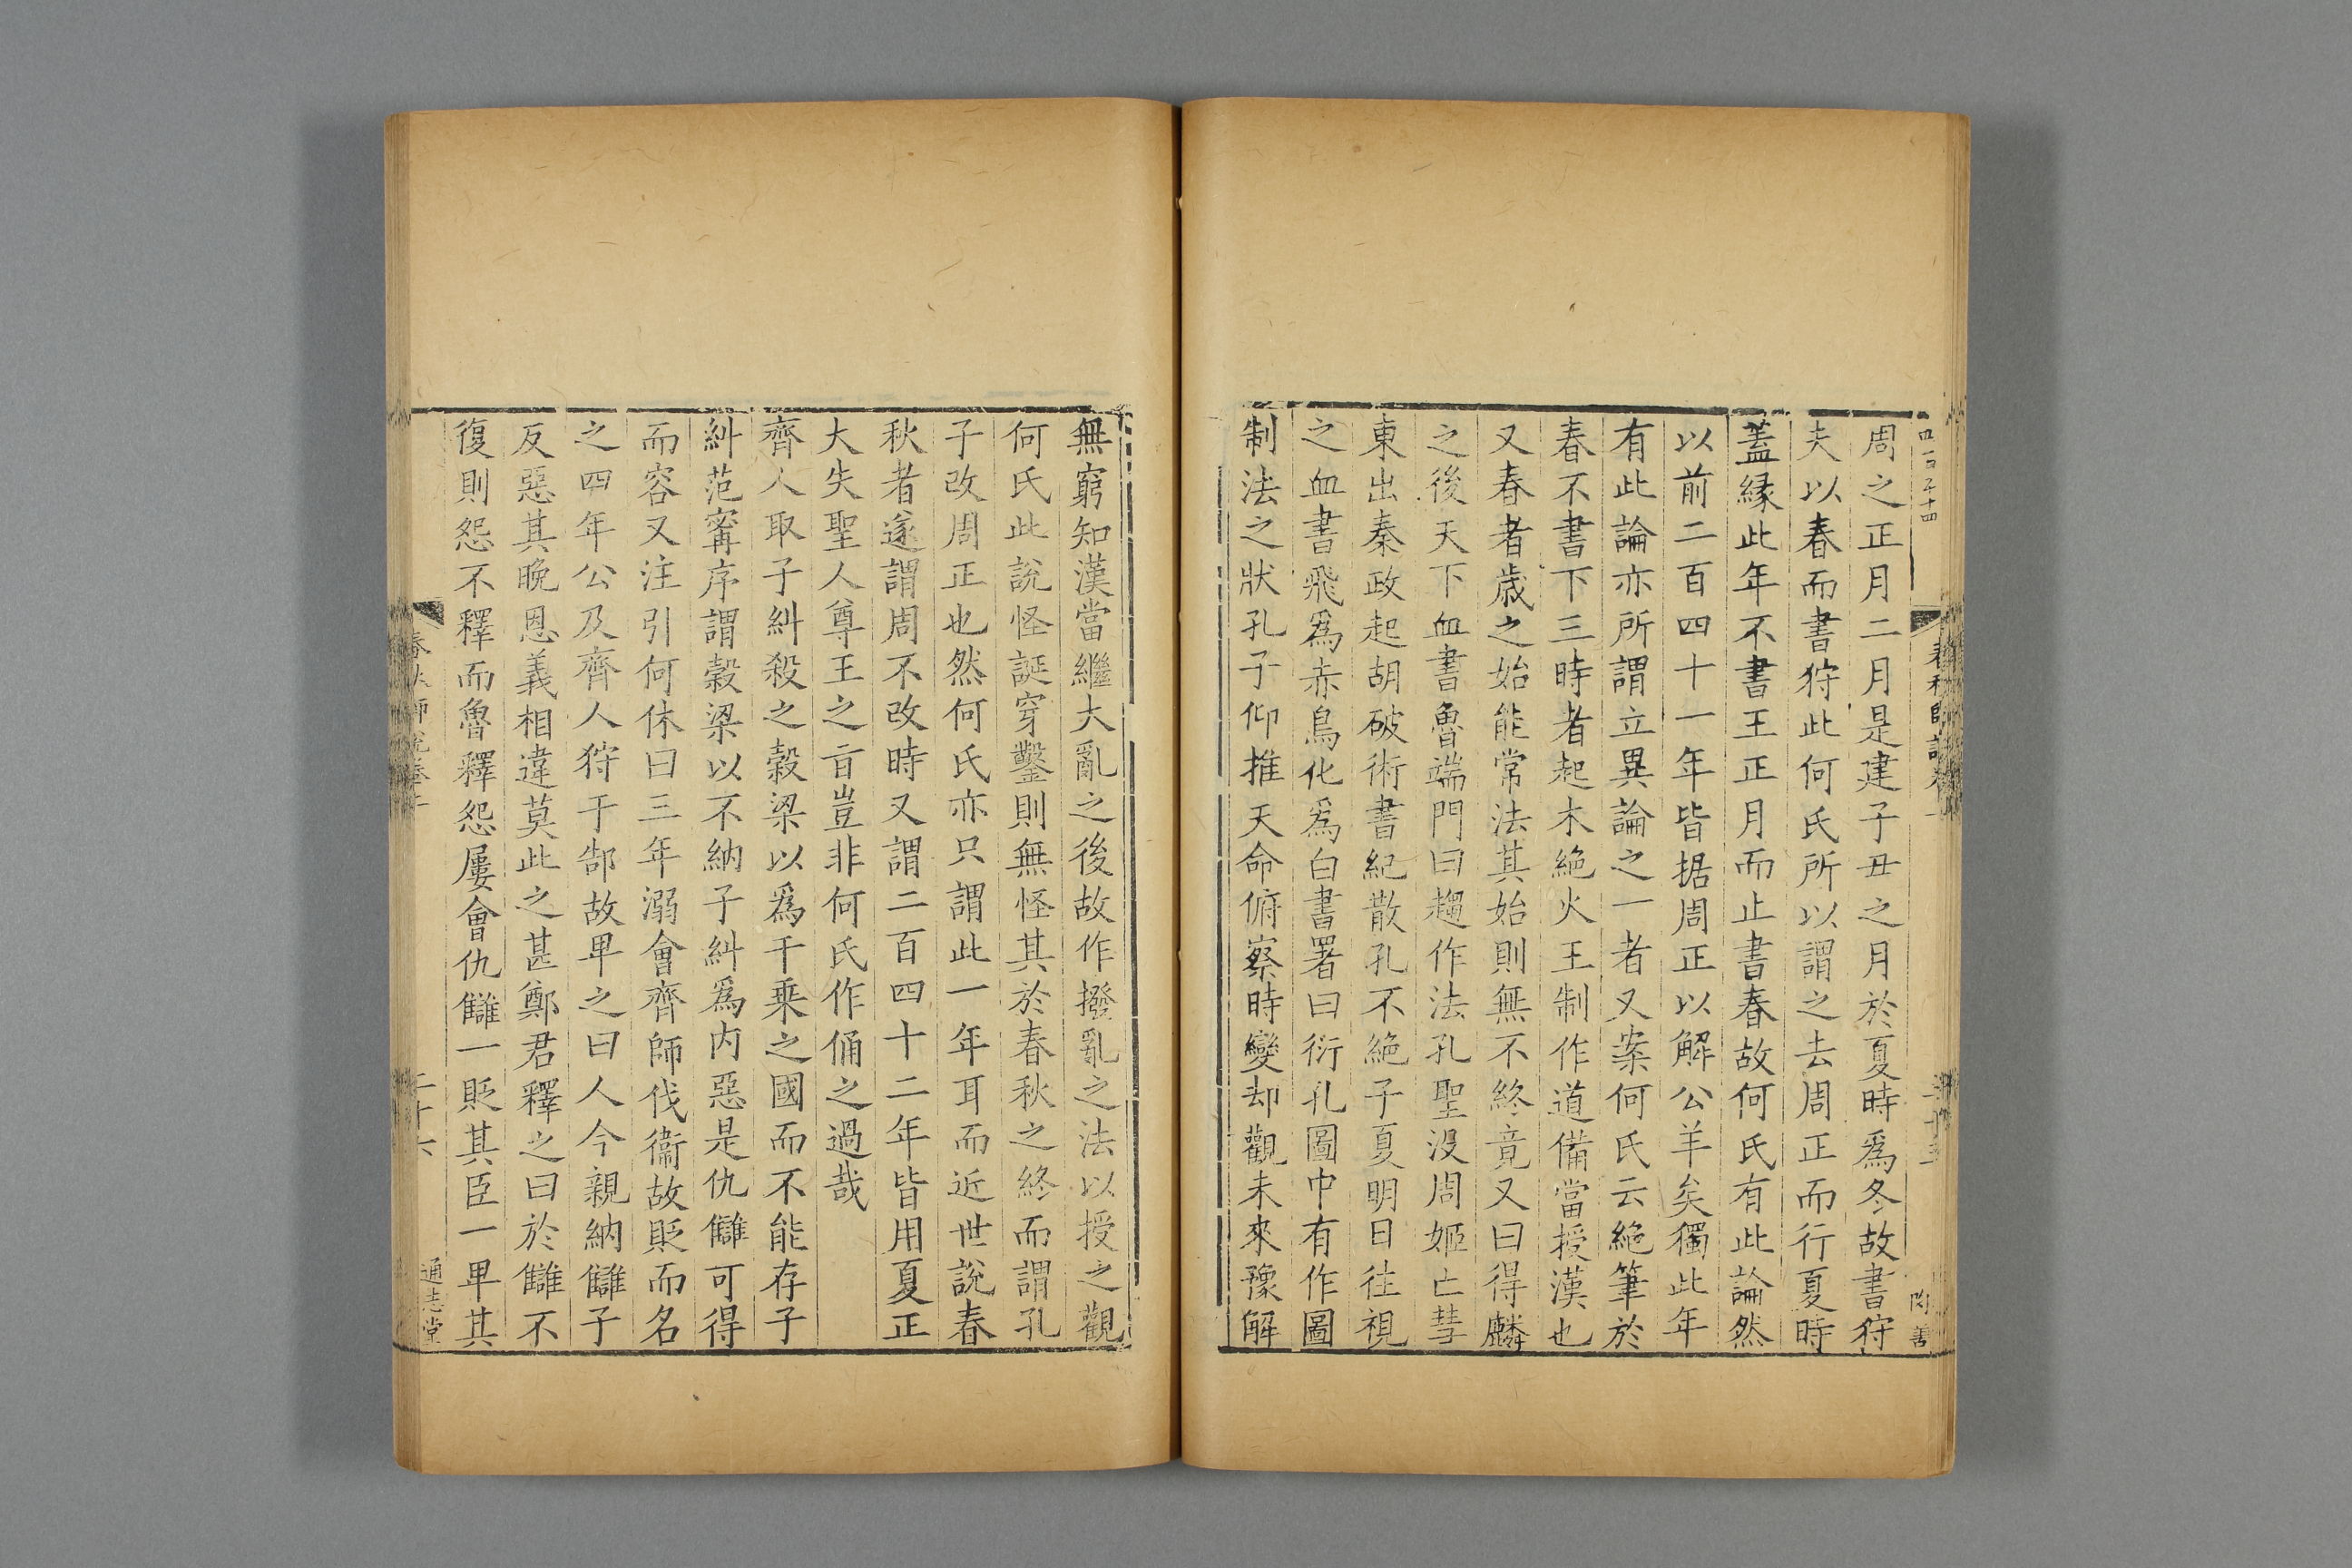 四百五十四
周之正月二月是建子丑之月於夏時爲冬故書狩
夫以春而書狩此何氏所以謂之去周正而行夏時
蓋緣此年不書王正月而止書春故何氏有此論然
以前二百四十一年皆据周正以解公羊矣獨此年
有此論亦所謂立異論之一者又案何氏云絶筆於
春不書下三時者起木絶火王制作道備當授漢也
又春者歲之始能常法其始則無不終竟又曰得麟
之後天下血書魯端門曰趨作法孔聖沒周姬亡彗
東出秦政起胡破術書紀散孔不絶子夏明日往視
之血書飛爲赤鳥化爲白書署曰衍孔圖中有作圖
制法之狀孔子仰推天命俯察時變却觀未來豫解
無窮知漢當繼大亂之後故作撥亂之法以授之觀
何氏此說怪誕穿鑿則無怪其於春秋之終而謂孔
子改周正也然何氏亦只謂此一年耳而近世說春
秋者遂謂周不改時又謂二百四十二年皆用夏正
大失聖人尊王之旨豈非何氏作俑之過哉
齊人取子糾殺之穀梁以爲千乘之國而不能存子
糾范甯序謂穀梁以不納子糾爲内惡是仇讎可得
而容又注引何休曰三年溺會齊師伐衞故貶而名
之四年公及齊人狩于郜故卑之曰人今親納讎子
反惡其晚恩義相違莫此之甚鄭君釋之曰於讎不
復則怨不釋而魯釋怨屢會仇讎一貶其臣一卑其
春秋師說卷下
二十六
通志堂